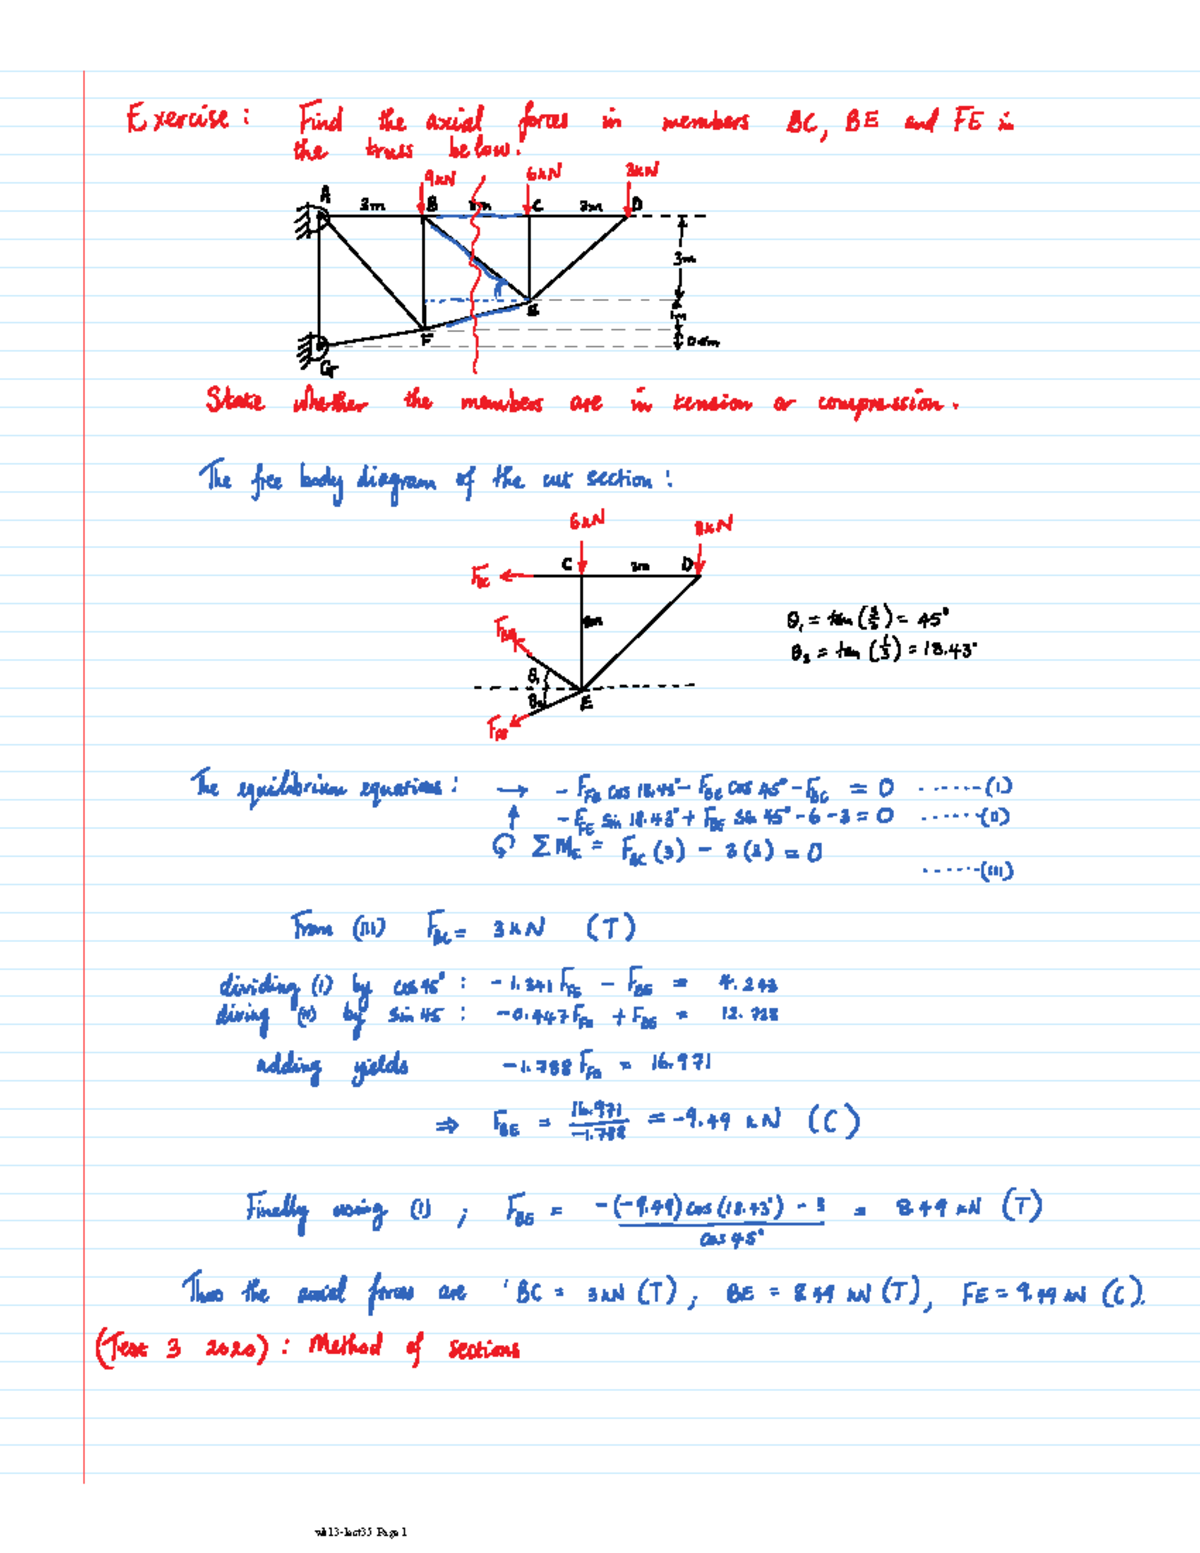 Exercise: Find the axial forces in members BC, BE and FE in
the truss below.
9kN 6kN 3kN
A 3m B 3m C 3m D
3m
E
1m
F
G
State whether the members are in tension or compression.
The free body diagram of the cut section:
6kN 3kN
F_BC C 3m D
3m
θ₁ = tan(3/3) = 45°
θ₂ = tan(1/3) = 18.43°
F_BE
θ₁
θ₂ E
F_FE
The equilibrium equations: → - F_FE cos 18.43° - F_BE cos 45° - F_BC = 0 ......(I)
↑ - F_FE sin 18.43° + F_BE sin 45° - 6 - 3 = 0 .....(II)
↺ ΣM_E = F_BC (3) - 3(3) = 0
.....(III)
From (III) F_BC = 3 kN (T)
dividing (I) by cos 45° : - 1.341 F_FE - F_BE = 4.243
diving (II) by sin 45 : - 0.447 F_FE + F_BE = 12.728
adding yields -1.788 F_FE = 16.971
⇒ F_BE = 16.971/-1.788 = -9.49 kN (C)
Finally using (I) ; F_BE = -(-9.49) cos(18.43°) - 3 / cos 45° = 8.49 kN (T)
Thus the axial forces are ' BC = 3kN (T) ; BE = 8.49 kN (T), FE = 9.49 kN (C).
(Test 3 2020) : Method of sections
wk13-lect35 Page 1